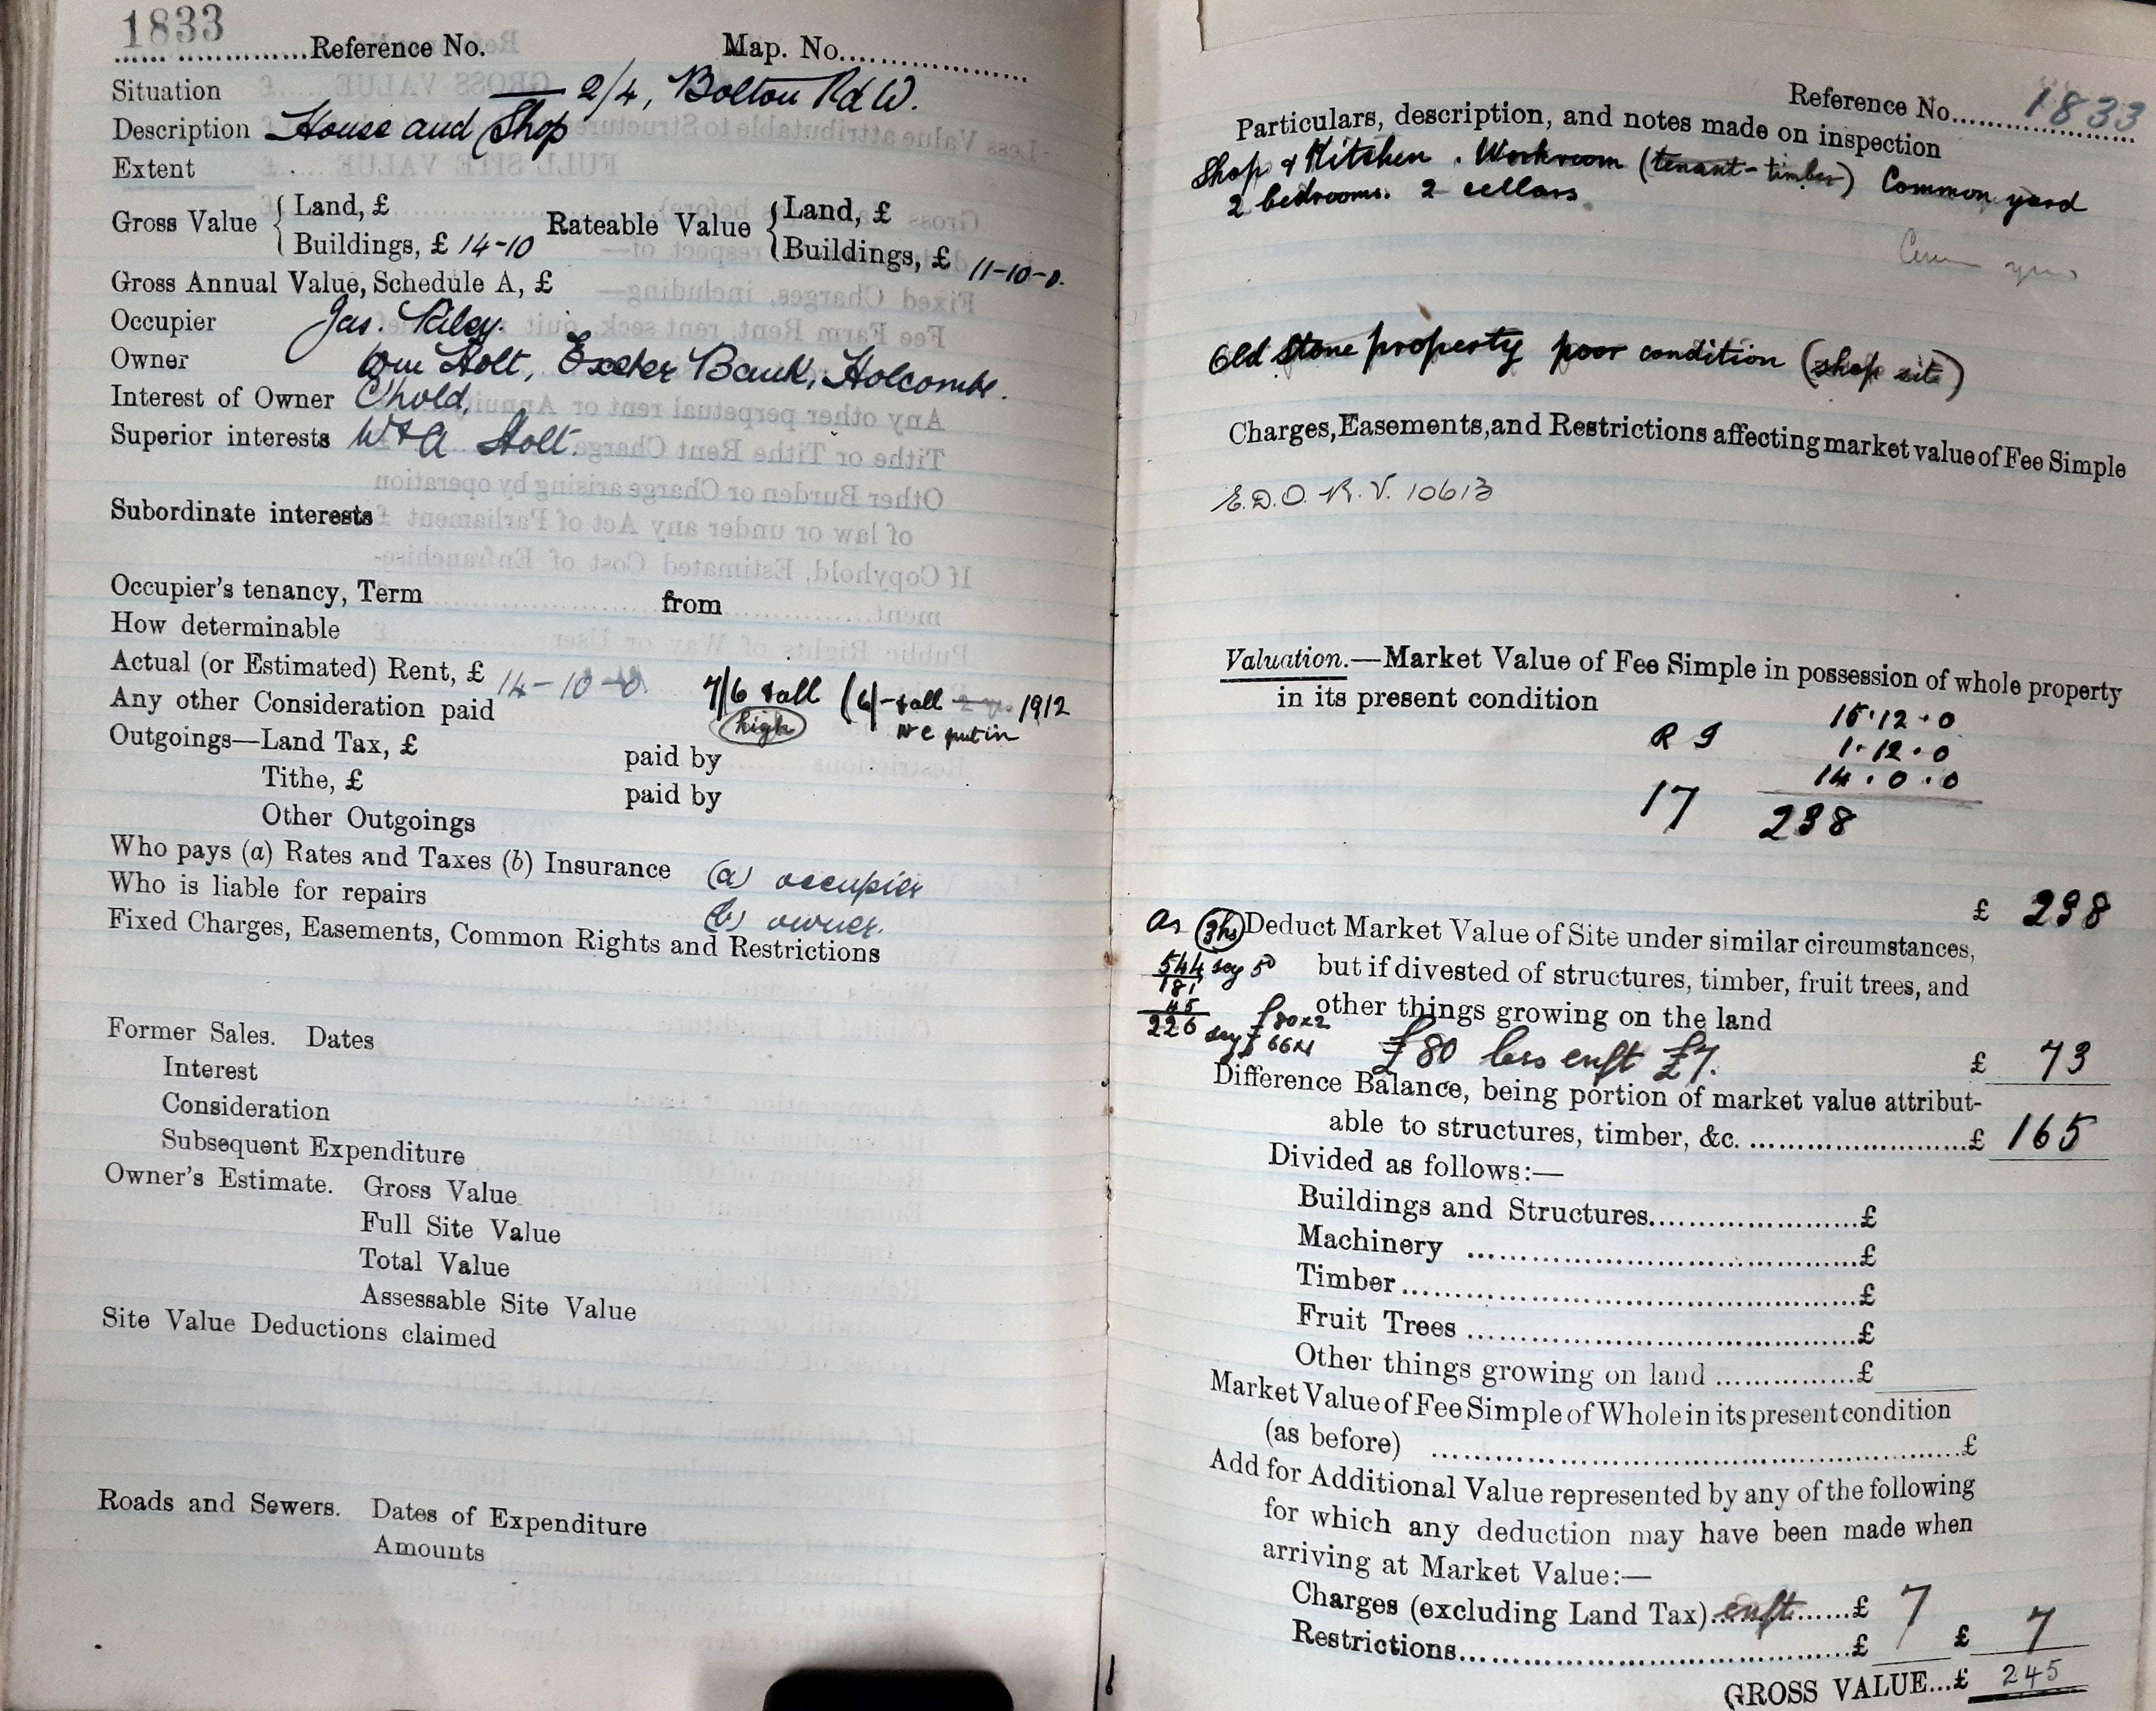 1833
Reference No. Map. No.
Situation 2/4, Bolton Rd W.
Description House and Shop
Extent
Gross Value { Land, £ Rateable Value { Land, £
Buildings, £ 14-10 Buildings, £ 11-10-0.
Gross Annual Value, Schedule A, £
Occupier Jas. Riley.
Owner Wm Holt, Exeter Bank, Holcombe.
Interest of Owner C'hold.
Superior interests W & A Holt.
Subordinate interests
Occupier's tenancy, Term from
How determinable
Actual (or Estimated) Rent, £ 14-10-0 7/6 & all (6/- & all 1912
Any other Consideration paid high WC put in
Outgoings—Land Tax, £ paid by
Tithe, £ paid by
Other Outgoings
Who pays (a) Rates and Taxes (b) Insurance (a) occupier
Who is liable for repairs (b) owner.
Fixed Charges, Easements, Common Rights and Restrictions
Former Sales. Dates
Interest
Consideration
Subsequent Expenditure
Owner's Estimate. Gross Value
Full Site Value
Total Value
Assessable Site Value
Site Value Deductions claimed
Roads and Sewers. Dates of Expenditure
Amounts
Reference No. 1833
Particulars, description, and notes made on inspection
Shop & Kitchen. Workroom (tenant-timber) Common yard
2 bedrooms. 2 cellars.
Old Stone property poor condition (shop site)
Charges, Easements, and Restrictions affecting market value of Fee Simple
E.D.O. R.V. 10613
Valuation.—Market Value of Fee Simple in possession of whole property
in its present condition
15.12.0
R I 1.12.0
14.0.0
17 238
£ 238
As 3hs Deduct Market Value of Site under similar circumstances,
544 say 50 but if divested of structures, timber, fruit trees, and
181
45 other things growing on the land
226 say £80x2
£66x1 £80 less enft £7. £ 73
Difference Balance, being portion of market value attribut-
able to structures, timber, &c. £ 165
Divided as follows:—
Buildings and Structures £
Machinery £
Timber £
Fruit Trees £
Other things growing on land £
Market Value of Fee Simple of Whole in its present condition
(as before) £
Add for Additional Value represented by any of the following
for which any deduction may have been made when
arriving at Market Value:—
Charges (excluding Land Tax) enft £ 7
Restrictions £ £ 7
GROSS VALUE...£ 245